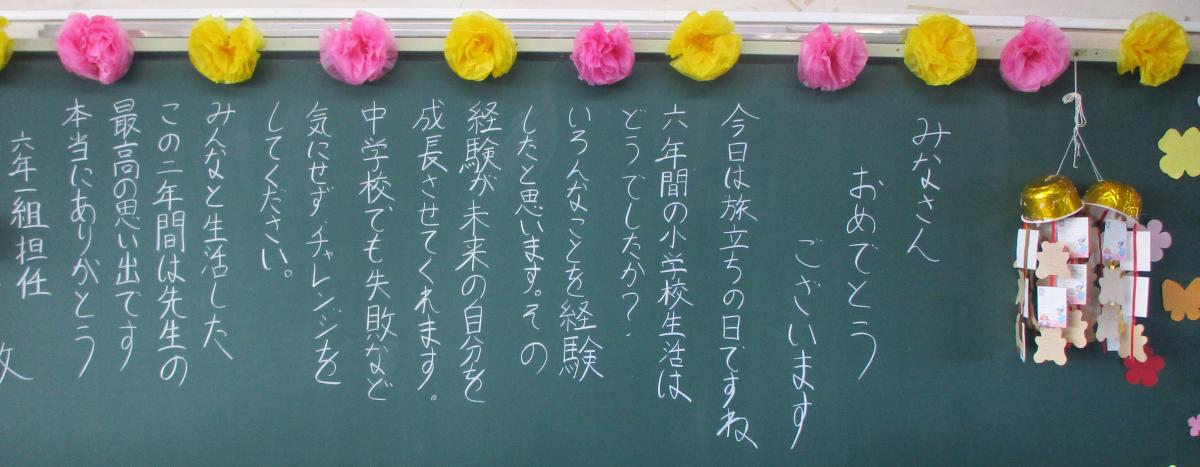 みなさん
おめでとう
ございます
今日は旅立ちの日ですね
六年間の小学校生活は
どうでしたか?
いろんなことを経験
したと思います。その
経験が未来の自分を
成長させてくれます。
中学校でも失敗など
気にせずチャレンジを
してください。
みんなと生活した
この二年間は先生の
最高の思い出です
本当にありがとう
六年一組担任